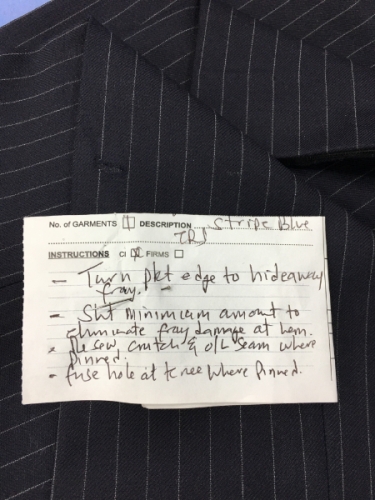 No. of GARMENTS 1 DESCRIPTION Stripe Blue
TRS
INSTRUCTIONS CI FIRMS
- Turn pkt edge to hideaway
fray.
- Sht minimum amount to
eliminate fray damage at hem.
- Re sew crutch & o/L seam where
pinned.
- fuse hole at knee where pinned.